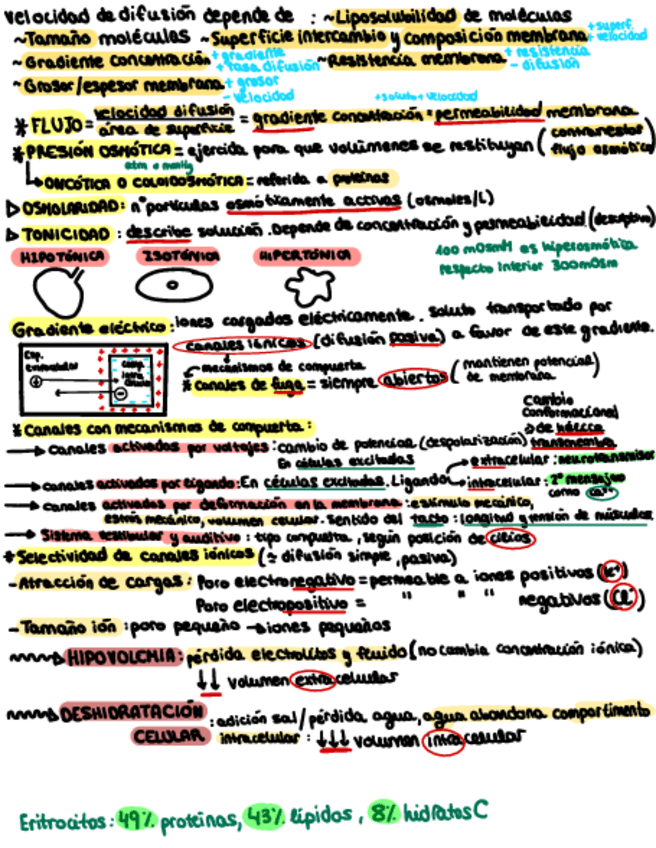 velocidad de difusión depende de : ~Liposolubilidad de moléculas
~Tamaño moléculas ~Superficie intercambio y composición membrana + superf. + velocidad
~Gradiente concentración + gradiente + tasa difusión ~Resistencia membrana + resistencia - difusión
~Grosor/espesor membrana + grosor - velocidad
* FLUJO = velocidad difusión / área de superficie = gradiente concentración = permeabilidad membrana
+ soluto + velocidad
* PRESIÓN OSMÓTICA = ejercida para que volúmenes se restituyan (contrarrestar flujo osmótico)
atm o mmHg
ONCÓTICA O COLOIDOSMÓTICA = referida a proteínas
▷ OSMOLARIDAD: nº partículas osmóticamente activas (osmoles/L)
▷ TONICIDAD : describe solución. Depende de concentración y permeabilidad (descriptivo)
HIPOTÓNICA ISOTÓNICA HIPERTÓNICA
400 mOsmM es hiperosmótica
respecto interior 300mOsm
Gradiente eléctrico: iones cargados eléctricamente. soluto transportado por
canales iónicos (difusión pasiva) a favor de este gradiente.
mecanismos de compuerta
* canales de fuga = siempre abiertos (mantienen potencial de membrana
Cambio
conformacional
de hélice
transmembr.
* Canales con mecanismos de compuerta :
canales activados por voltajes : cambio de potencial (despolarización)
En células excitadas
canales activados por ligando: En células excitadas. Ligando
extracelular : neurotransmisor
intracelular : 2º mensajero
como Ca²⁺
canales activados por deformación en la membrana : estímulo mecánico,
estrés mecánico, volumen celular. Sentido del tacto : longitud y tensión de músculos.
Sistema vestibular y auditivo : tipo compuerta, según posición de cilios
* Selectividad de canales iónicos (≃ difusión simple, pasiva)
- Atracción de cargas : Poro electronegativo = permeable a iones positivos (K⁺)
Poro electropositivo = " " " negativos (Cl⁻)
- Tamaño ión : poro pequeño → iones pequeños
HIPOVOLEMIA : pérdida electrolitos y fluido (no cambia concentración iónica)
↓↓ volumen extracelular
DESHIDRATACIÓN : adición sal / pérdida agua, agua abandona compartimento
CELULAR intracelular : ↓↓↓ volumen intracelular
Eritrocitos : 49% proteínas, 43% lípidos, 8% hidratos C